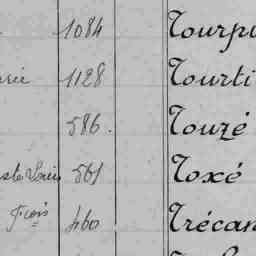 1084 Tourpi
1128 Tourti
586. Touzé
Louis 561 Toxé
Fçois 460 Trécan